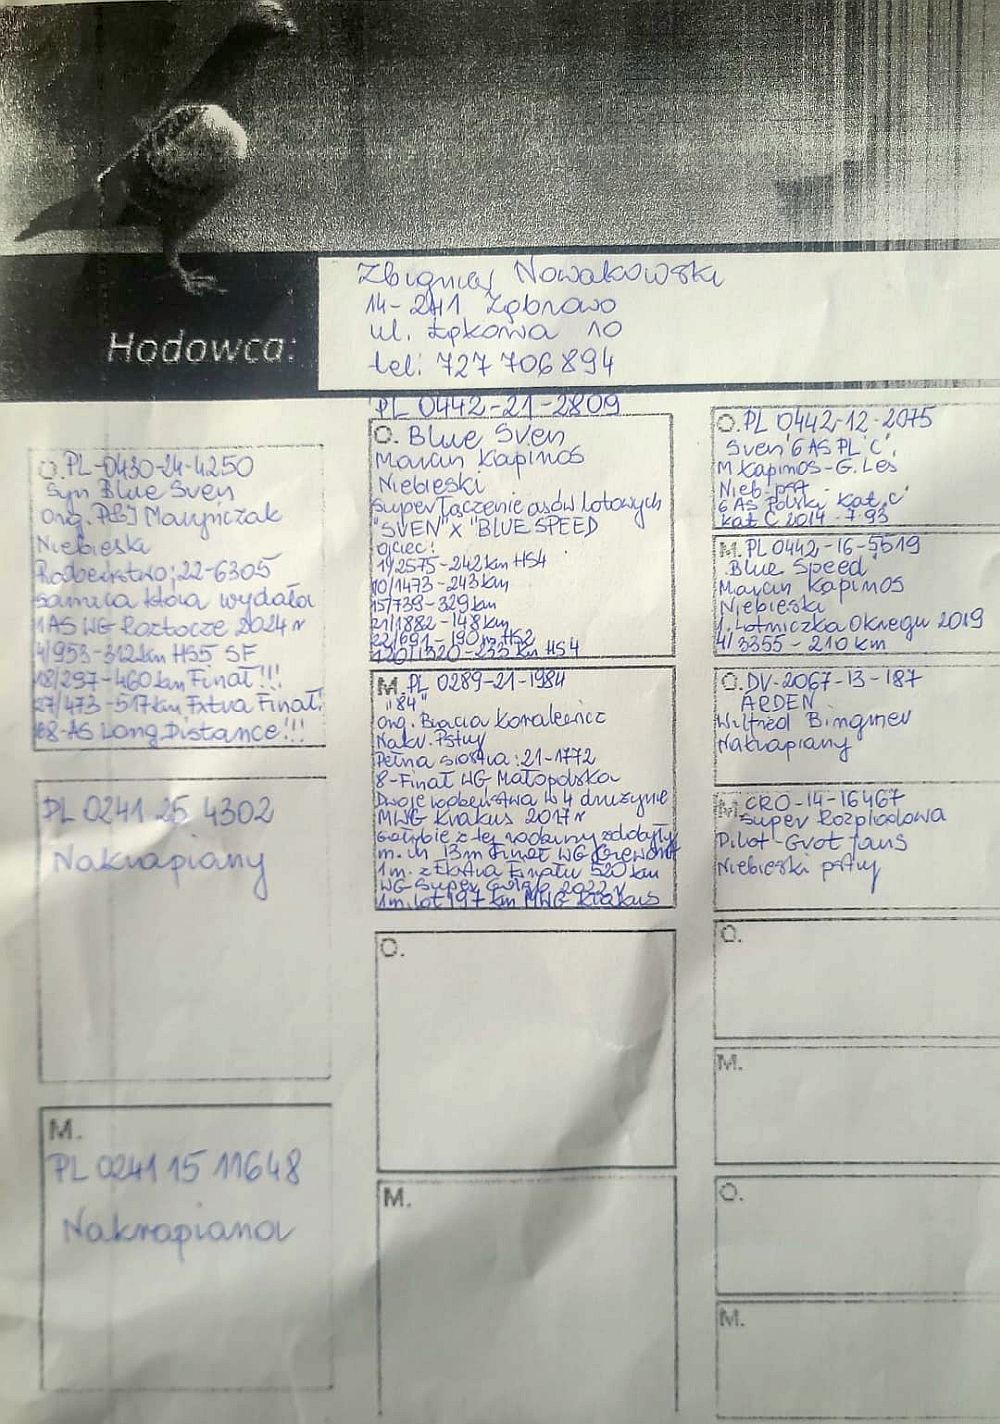 Zbigniew Nowakowski
14-241 Ząbrowo
ul. Łąkowa 10
tel: 727 706 894
Hodowca:
O. PL-0430-24-4250
Syn Blue Sven
Org. P&J Maryńczak
Niebieski
Rodzeństwo: 22-6305
samica która wydała
1AS WG Roztocze 2024 r
4/953-312km HS5 SF
18/297-460 km Finał!!!
27/473-517km Extra Finał!
e8-AS Long Distance!!!
PL 0241 25 4302
Nakrapiany
M.
PL 0241 15 11648
Nakrapiana
PL 0442-21-2809
O. Blue Sven
Marcin Kapinos
Niebieski
Super łączenie asów lotowych
"SVEN" X "BLUE SPEED
ojciec:
19/2575-242km HS4
10/1473-243km
15/739-329km
21/1882-148km
22/691-190m HS2
HS4
M. PL 0289-21-1984
"84"
Org. Bracia Kowalewicz
Nakr. Pstry
Pełna siostra: 21-1772
8-Finał WG Małopolska
Dwoje rodzeństwa w 4 drużynie
MWG Krakus 2017 r
Gołębie z tej rodziny zdobyły
m. in 13m Finał WG Giewont
1m. z Extra Finału 520 km
WG Super 2022 r
1m. lot 197 km MWG Krakus
O.
M.
O. PL 0442-12-2075
Sven '6 AS PL 'C'
M Kapinos-G. Les
Nieb-pst
6 AS Polski kat, C'
Kat C 2014-7.93
M. PL 0442-16-5519
"Blue Speed"
Marcin Kapinos
Niebieska
1. Lotniczka Okręgu 2019
4/3355-210 km
O. DV-2067-13-187
ARDEN
Wilfried Bingmer
Nakrapiany
M. CRO-14-16467
Super Rozpłodowa
Pilot-Grot Jans
Niebieski pstry
O.
M.
O.
M.